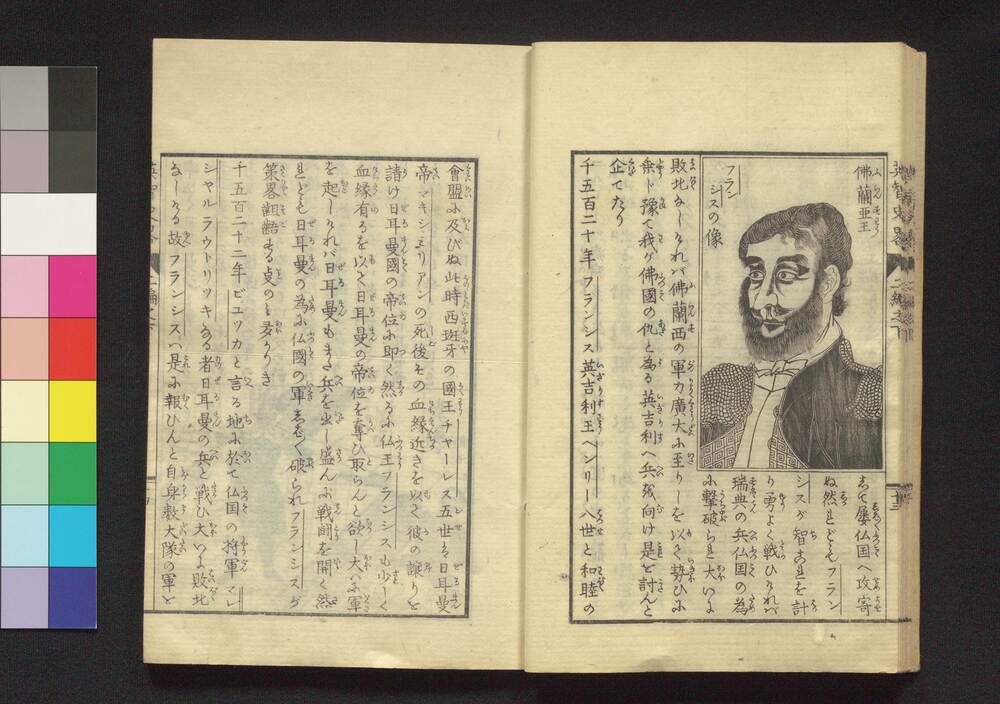 佛蘭亜王
フラン
シスの像
志て屡仏国へ攻寄
ぬ然れども フラン
シスが智あれを計
り勇よく戦ひければ
瑞典の兵仏国の為
に撃破られ大いに
敗北なしければ佛蘭西の軍力廣大に至りしを以て勢ひに
乗ト豫て我が佛國の仇と為る英吉利へ兵を向け是を討んと
企てたり
千五百二十年フランシス英吉利王ヘンリー八世と和睦の
會盟に及びぬ此時西班牙の國王チャーレス五世は日耳曼
帝マキシミリアンの死後その血縁近きを以て彼の譲りを
請け日耳曼國の帝位に即く然るに仏王フランシスも少しく
血縁有るを以て日耳曼の帝位を奪ひ取らんと欲し大いに軍
を起しければ日耳曼もまた兵を出し盛んに戦鬪を開く然
れども日耳曼の為に仏國の軍志ばしば破られフランシスが
策畧齟齬する事のミ多かりき
千五百二十二年ビコッカと言る地に於て仏国の将軍マレ
シャルラウトリッキなる者日耳曼の兵と戦ひ大いに敗北
なしける故フランシスハ是に報ひんと自身数大隊の軍を